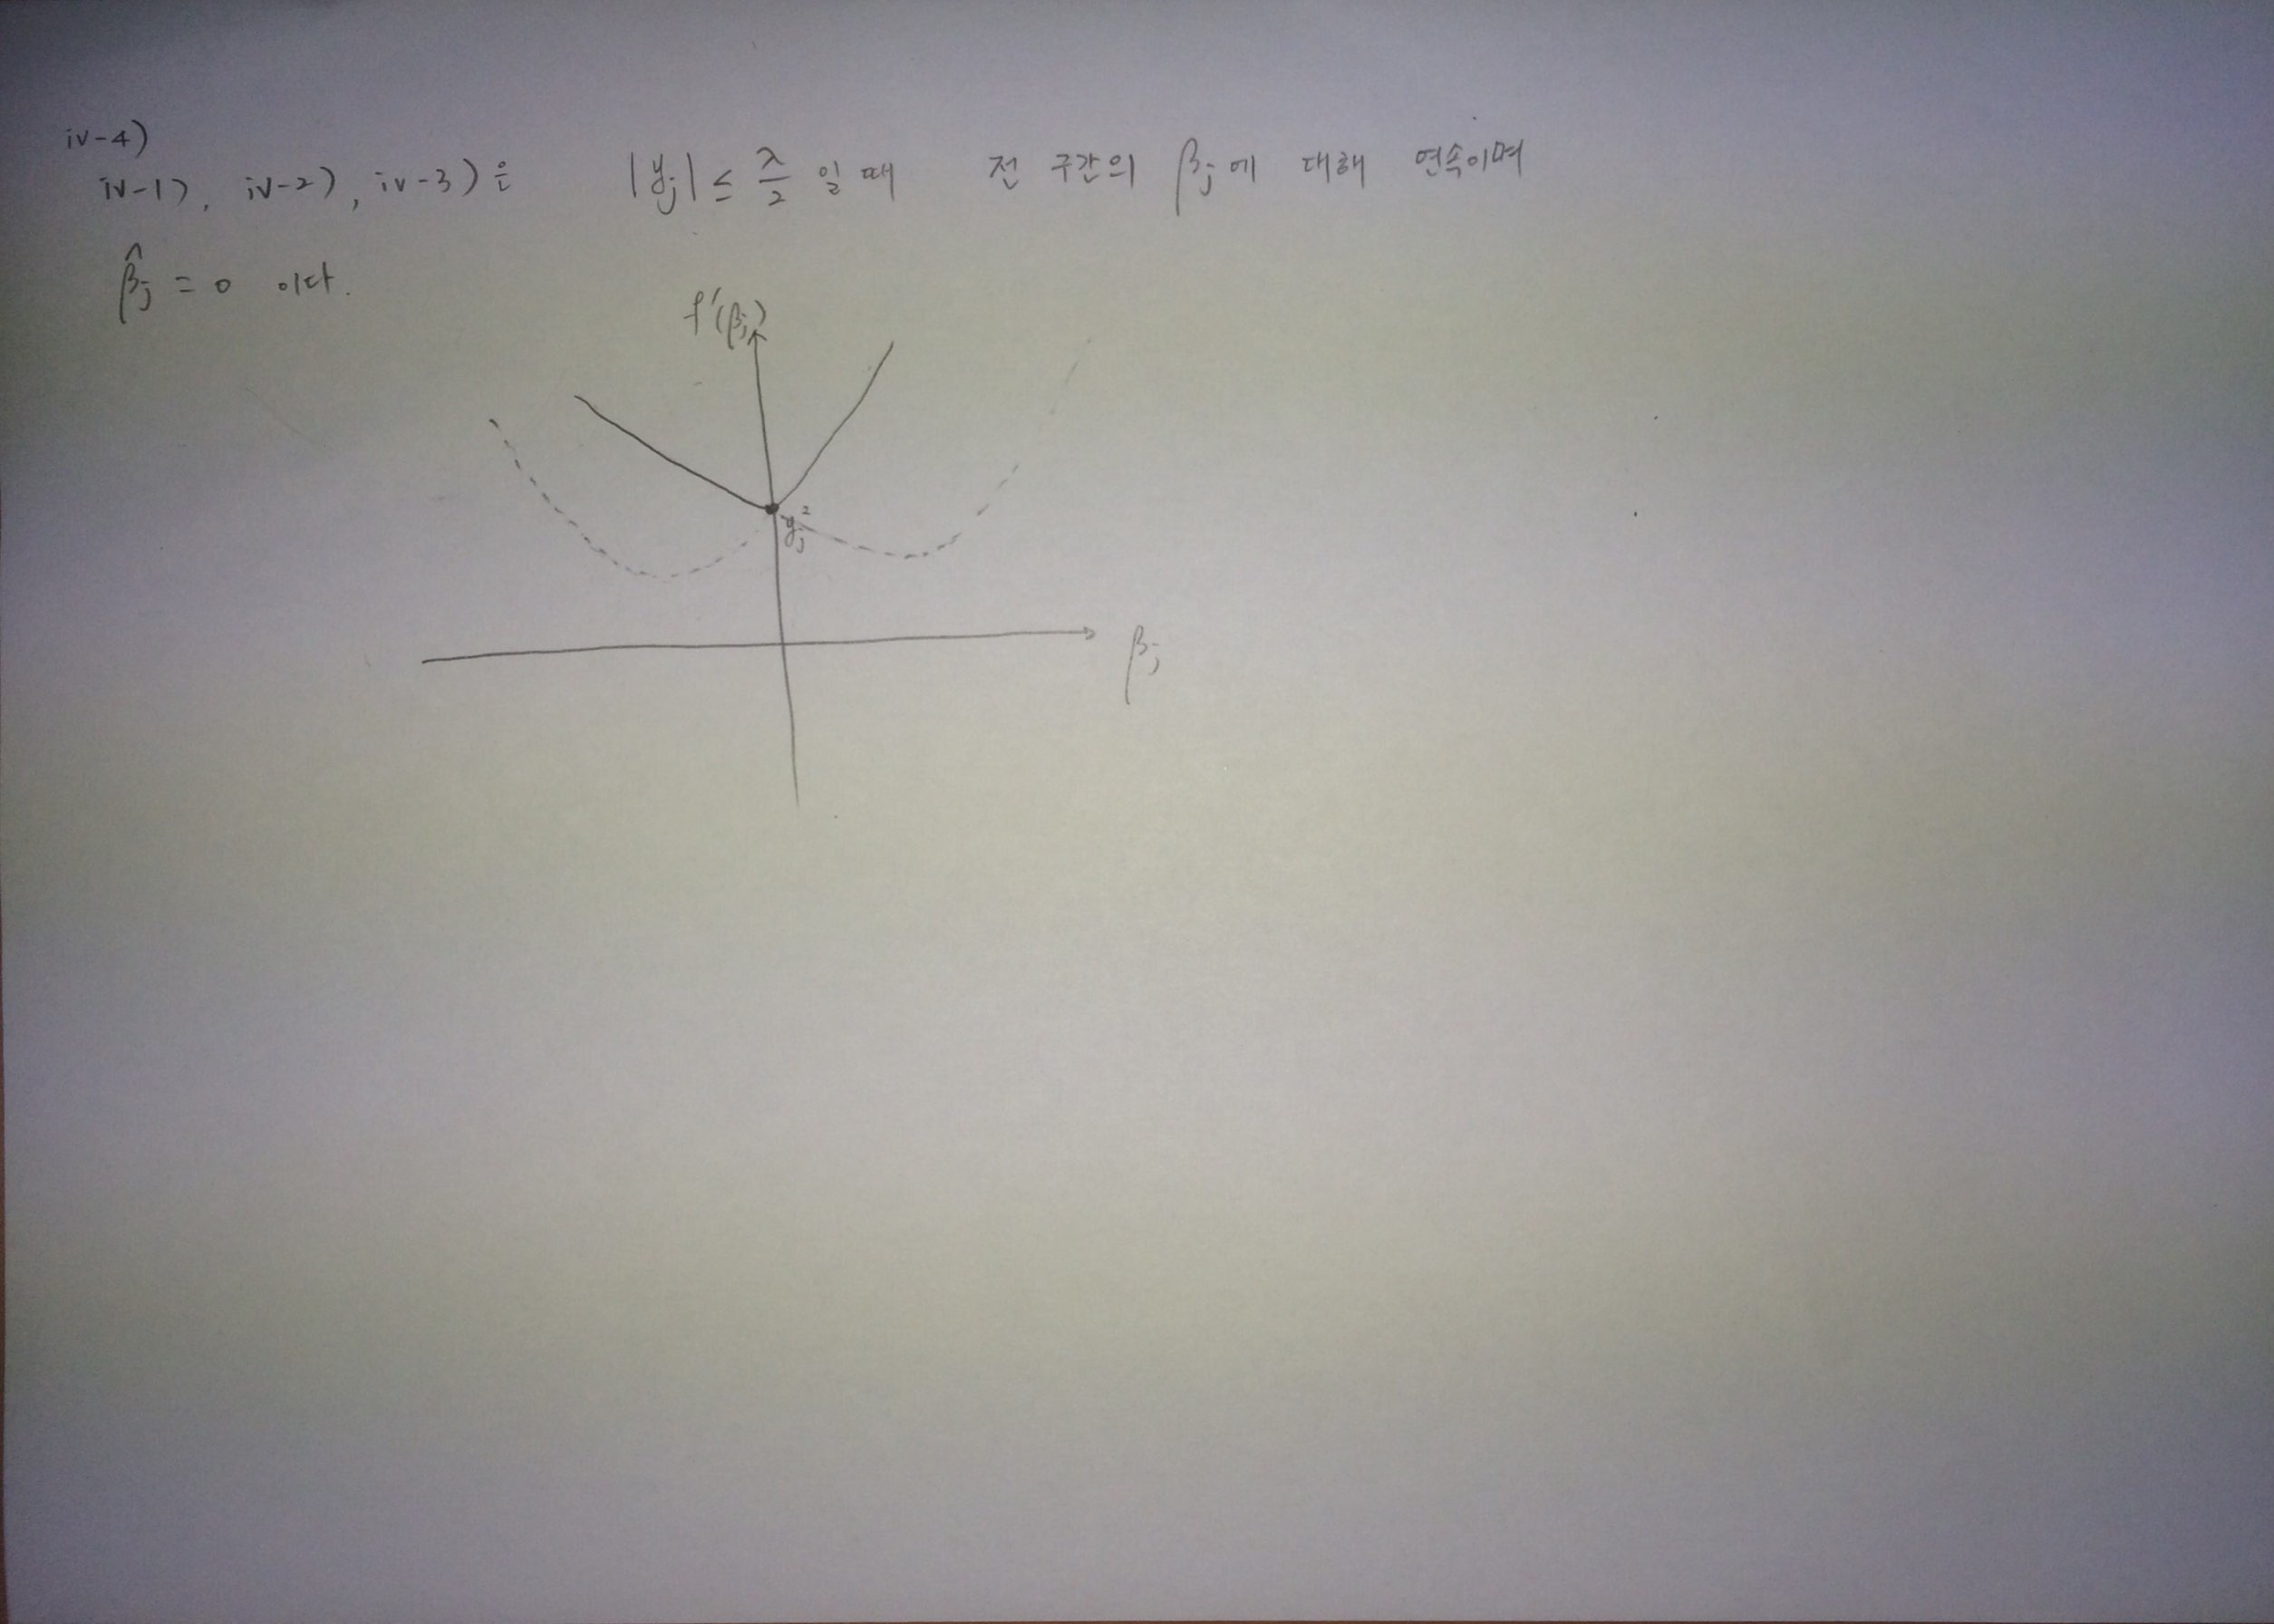 iv-4)
iv-1), iv-2), iv-3)은 |yⱼ| ≤ λ/2 일 때 전 구간의 βⱼ에 대해 연속이며
β̂ⱼ = 0 이다.
f'(βⱼ)
yⱼ²
βⱼ